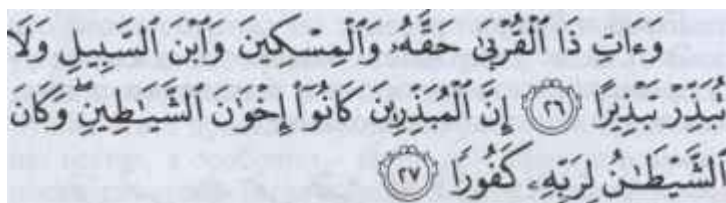 وَءَاتِ ذَا ٱلْقُرْبَىٰ حَقَّهُۥ وَٱلْمِسْكِينَ وَٱبْنَ ٱلسَّبِيلِ وَلَا
تُبَذِّرْ تَبْذِيرًا ٢٦ إِنَّ ٱلْمُبَذِّرِينَ كَانُوٓا۟ إِخْوَٰنَ ٱلشَّيَـٰطِينِ ۖ وَكَانَ
ٱلشَّيْطَـٰنُ لِرَبِّهِۦ كَفُورًا ٢٧